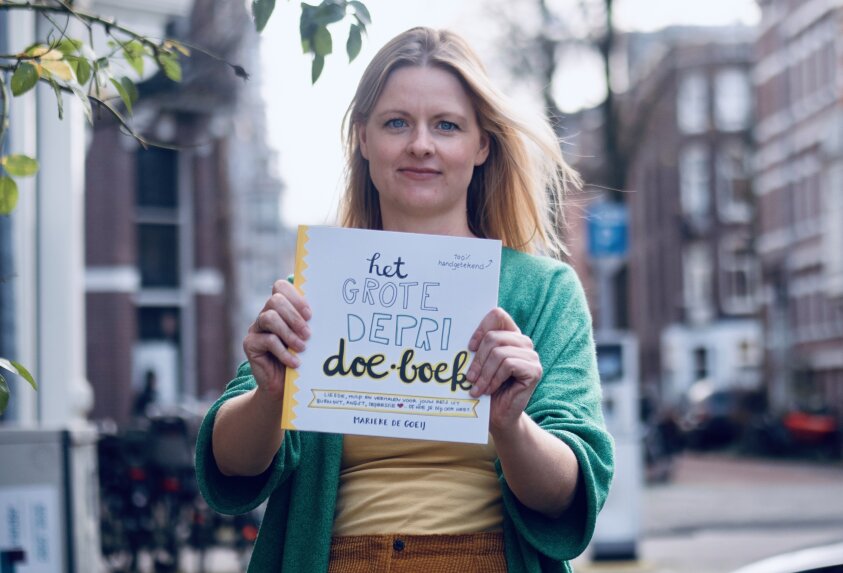 100%
handgetekend
het
GROTE
DEPRI
doe·boek
LIEFDE, HULP EN VERHALEN VOOR JOUW REIS UIT
BURNOUT, ANGST, DEPRESSIE ♥ OF HOE JE HET OOK NOEMT
MARIEKE DE GOEIJ